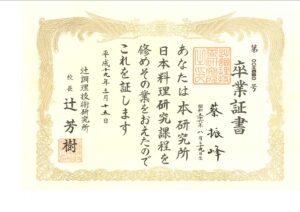 卒業証書
蔡振峰
あなたは本研究所
日本料理研究課程を
修めその業をおえたので
これを証します
平成十九年三月十五日
辻調理技術研究所
校長 辻芳樹